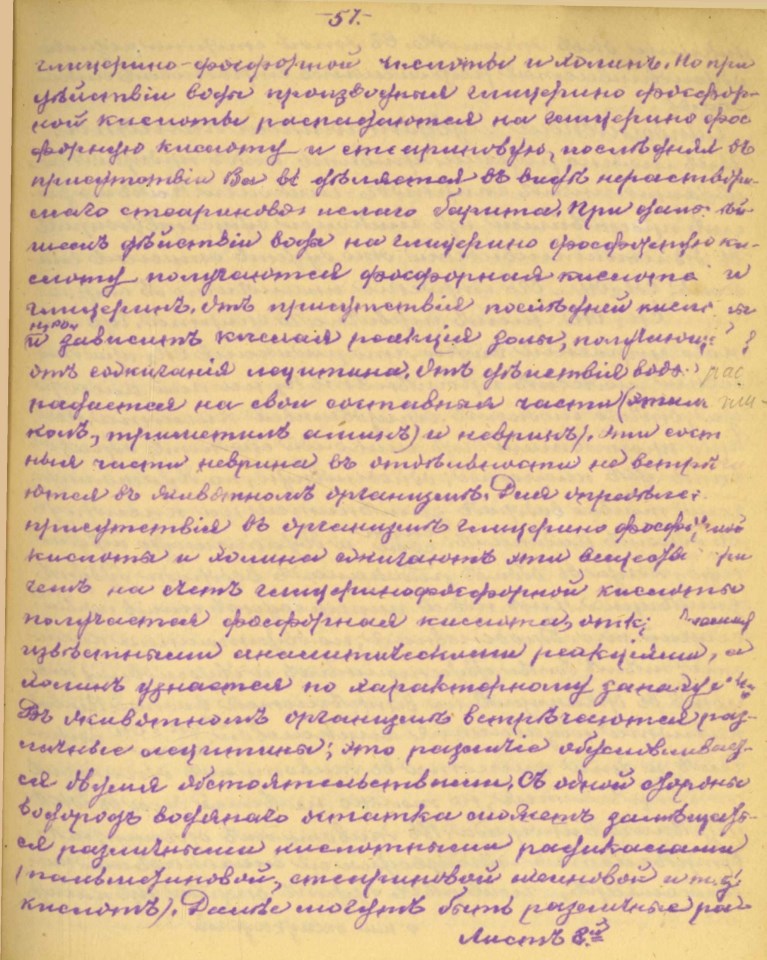 -57.-
глицерино-фосфорной кислоты и холинъ. Но при
дѣйствіи воды производныя глицерино фосфор-
ной кислоты распадаются на глицерино фос
форную кислоту и стеариновую, послѣдняя въ
присутствіи Ba выдѣляется въ видѣ нераствори-
маго стеариново кислаго барита. При даль
шемъ дѣйствіи воды на глицерино фосфорную ки-
слоту получаются фосфорная кислота и
глицеринъ. Отъ присутствія послѣдней кисло ты
и зависитъ кислая реакція золы, получающ
отъ сожиганія лецитина. Отъ дѣйствія воды рас
падается на свои составныя части (этил гли-
колъ, триметилъ аминъ) и невринъ). Эти сост
ныя части неврина въ отдѣльности не встрѣ
ются въ животномъ организмѣ. Для опредѣле
присутствія въ организмѣ глицерино фосфорной
кислоты и холина сжигаютъ эти вещества при
чемъ на счетъ глицеринофосфорной кислоты
получается фосфорная кислота, отк
извѣстными аналитическими реакціями, а
холинъ узнается по характерному запаху
Въ животномъ организмѣ встрѣчаются раз-
личные лецитины; это различіе обусловливает-
ся двумя обстоятельствами. Съ одной стороны
водородъ водянаго остатка можетъ замѣщать-
ся различными кислотными радикалами
(пальмитиновой, стеариновой олеиновой и т.д.
кислотъ). Далѣе могутъ быть различные ра-
Листъ 8.й